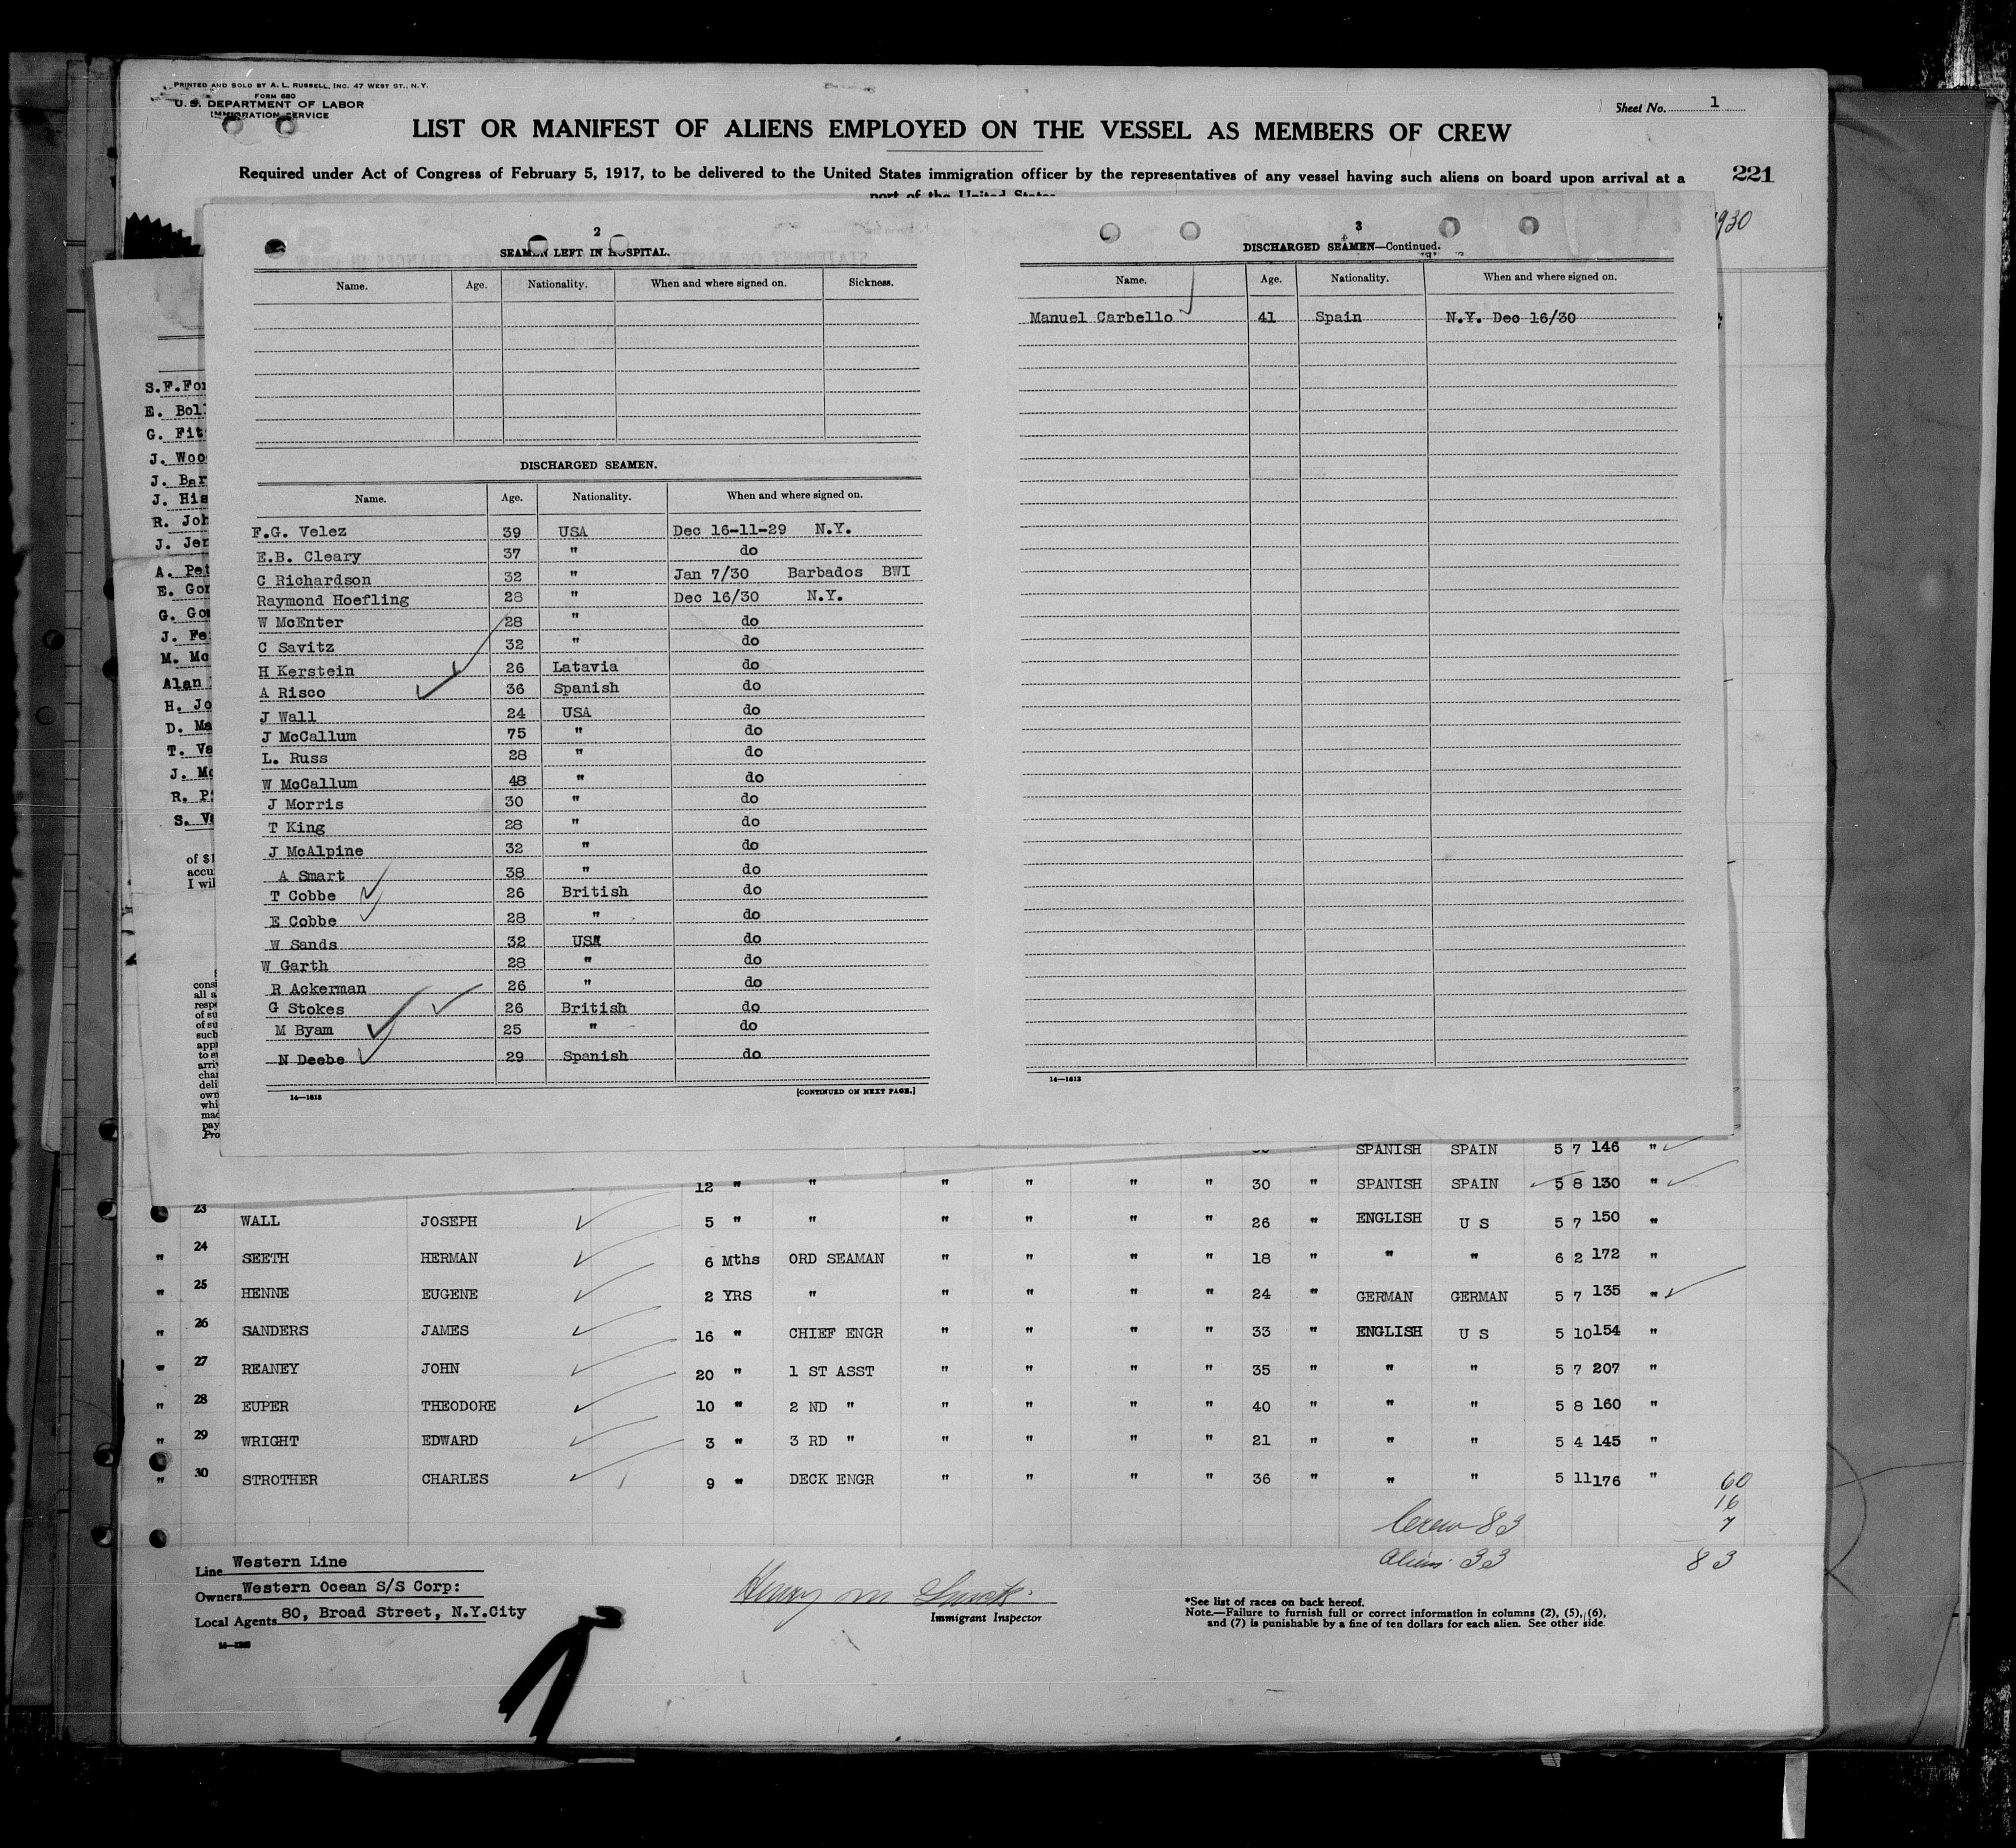 PRINTED AND SOLD BY A. L. RUSSELL, INC. 47 WEST ST., N. Y.
FORM 680
U. S. DEPARTMENT OF LABOR
IMMIGRATION SERVICE
Sheet No. 1
LIST OR MANIFEST OF ALIENS EMPLOYED ON THE VESSEL AS MEMBERS OF CREW
Required under Act of Congress of February 5, 1917, to be delivered to the United States immigration officer by the representatives of any vessel having such aliens on board upon arrival at a
port of the United States
221
1930
S.F.For
E. Boll
G. Fit
J. Woo
J. Bar
J. His
R. Joh
J. Jer
A. Pet
E. Gor
G. Gon
J. Fe
M. Mc
Alan
H. Jo
D. Ma
T. Va
J. Mc
R. P
S. Va
of $1
accu
I wil
consi
all a
resp
of su
of su
such
appr
to su
arri
char
deli
own
whi
mad
pay
Pro
2
SEAMEN LEFT IN HOSPITAL.
Name. Age. Nationality. When and where signed on. Sickness.
DISCHARGED SEAMEN.
Name. Age. Nationality. When and where signed on.
F.G. Velez 39 USA Dec 16-11-29 N.Y.
E.B. Cleary 37 " do
C Richardson 32 " Jan 7/30 Barbados BWI
Raymond Hoefling 28 " Dec 16/30 N.Y.
W McEnter 28 " do
C Savitz 32 " do
H Kerstein 26 Latavia do
A Risco 36 Spanish do
J Wall 24 USA do
J McCallum 75 " do
L. Russ 28 " do
W McCallum 48 " do
J Morris 30 " do
T King 28 " do
J McAlpine 32 " do
A Smart 38 " do
T Cobbe 26 British do
E Cobbe 28 " do
W Sands 32 USA do
W Garth 28 " do
R Ackerman 26 " do
G Stokes 26 British do
M Byam 25 " do
N Deebe 29 Spanish do
14—1613 [CONTINUED ON NEXT PAGE.]
3
DISCHARGED SEAMEN—Continued.
Name. Age. Nationality. When and where signed on.
Manuel Carbello 41 Spain N.Y. Dec 16/30
14—1613
SPANISH SPAIN 5 7 146 "
12 " " " " " " 30 " SPANISH SPAIN 5 8 130 "
23 WALL JOSEPH 5 " " " " " " 26 " ENGLISH U S 5 7 150 "
" 24 SEETH HERMAN 6 Mths ORD SEAMAN " " " " 18 " " " 6 2 172 "
" 25 HENNE EUGENE 2 YRS " " " " " 24 " GERMAN GERMAN 5 7 135 "
" 26 SANDERS JAMES 16 " CHIEF ENGR " " " " 33 " ENGLISH U S 5 10 154 "
" 27 REANEY JOHN 20 " 1 ST ASST " " " " 35 " " " 5 7 207 "
" 28 EUPER THEODORE 10 " 2 ND " " " " " 40 " " " 5 8 160 "
" 29 WRIGHT EDWARD 3 " 3 RD " " " " " 21 " " " 5 4 145 "
" 30 STROTHER CHARLES 9 " DECK ENGR " " " " 36 " " " 5 11 176 "
60
16
7
83
Crew 83
Aliens 33
Line Western Line
Owners Western Ocean S/S Corp:
Local Agents 80, Broad Street, N.Y.City
Henry M
Immigrant Inspector
*See list of races on back hereof.
Note.—Failure to furnish full or correct information in columns (2), (5), (6),
and (7) is punishable by a fine of ten dollars for each alien. See other side